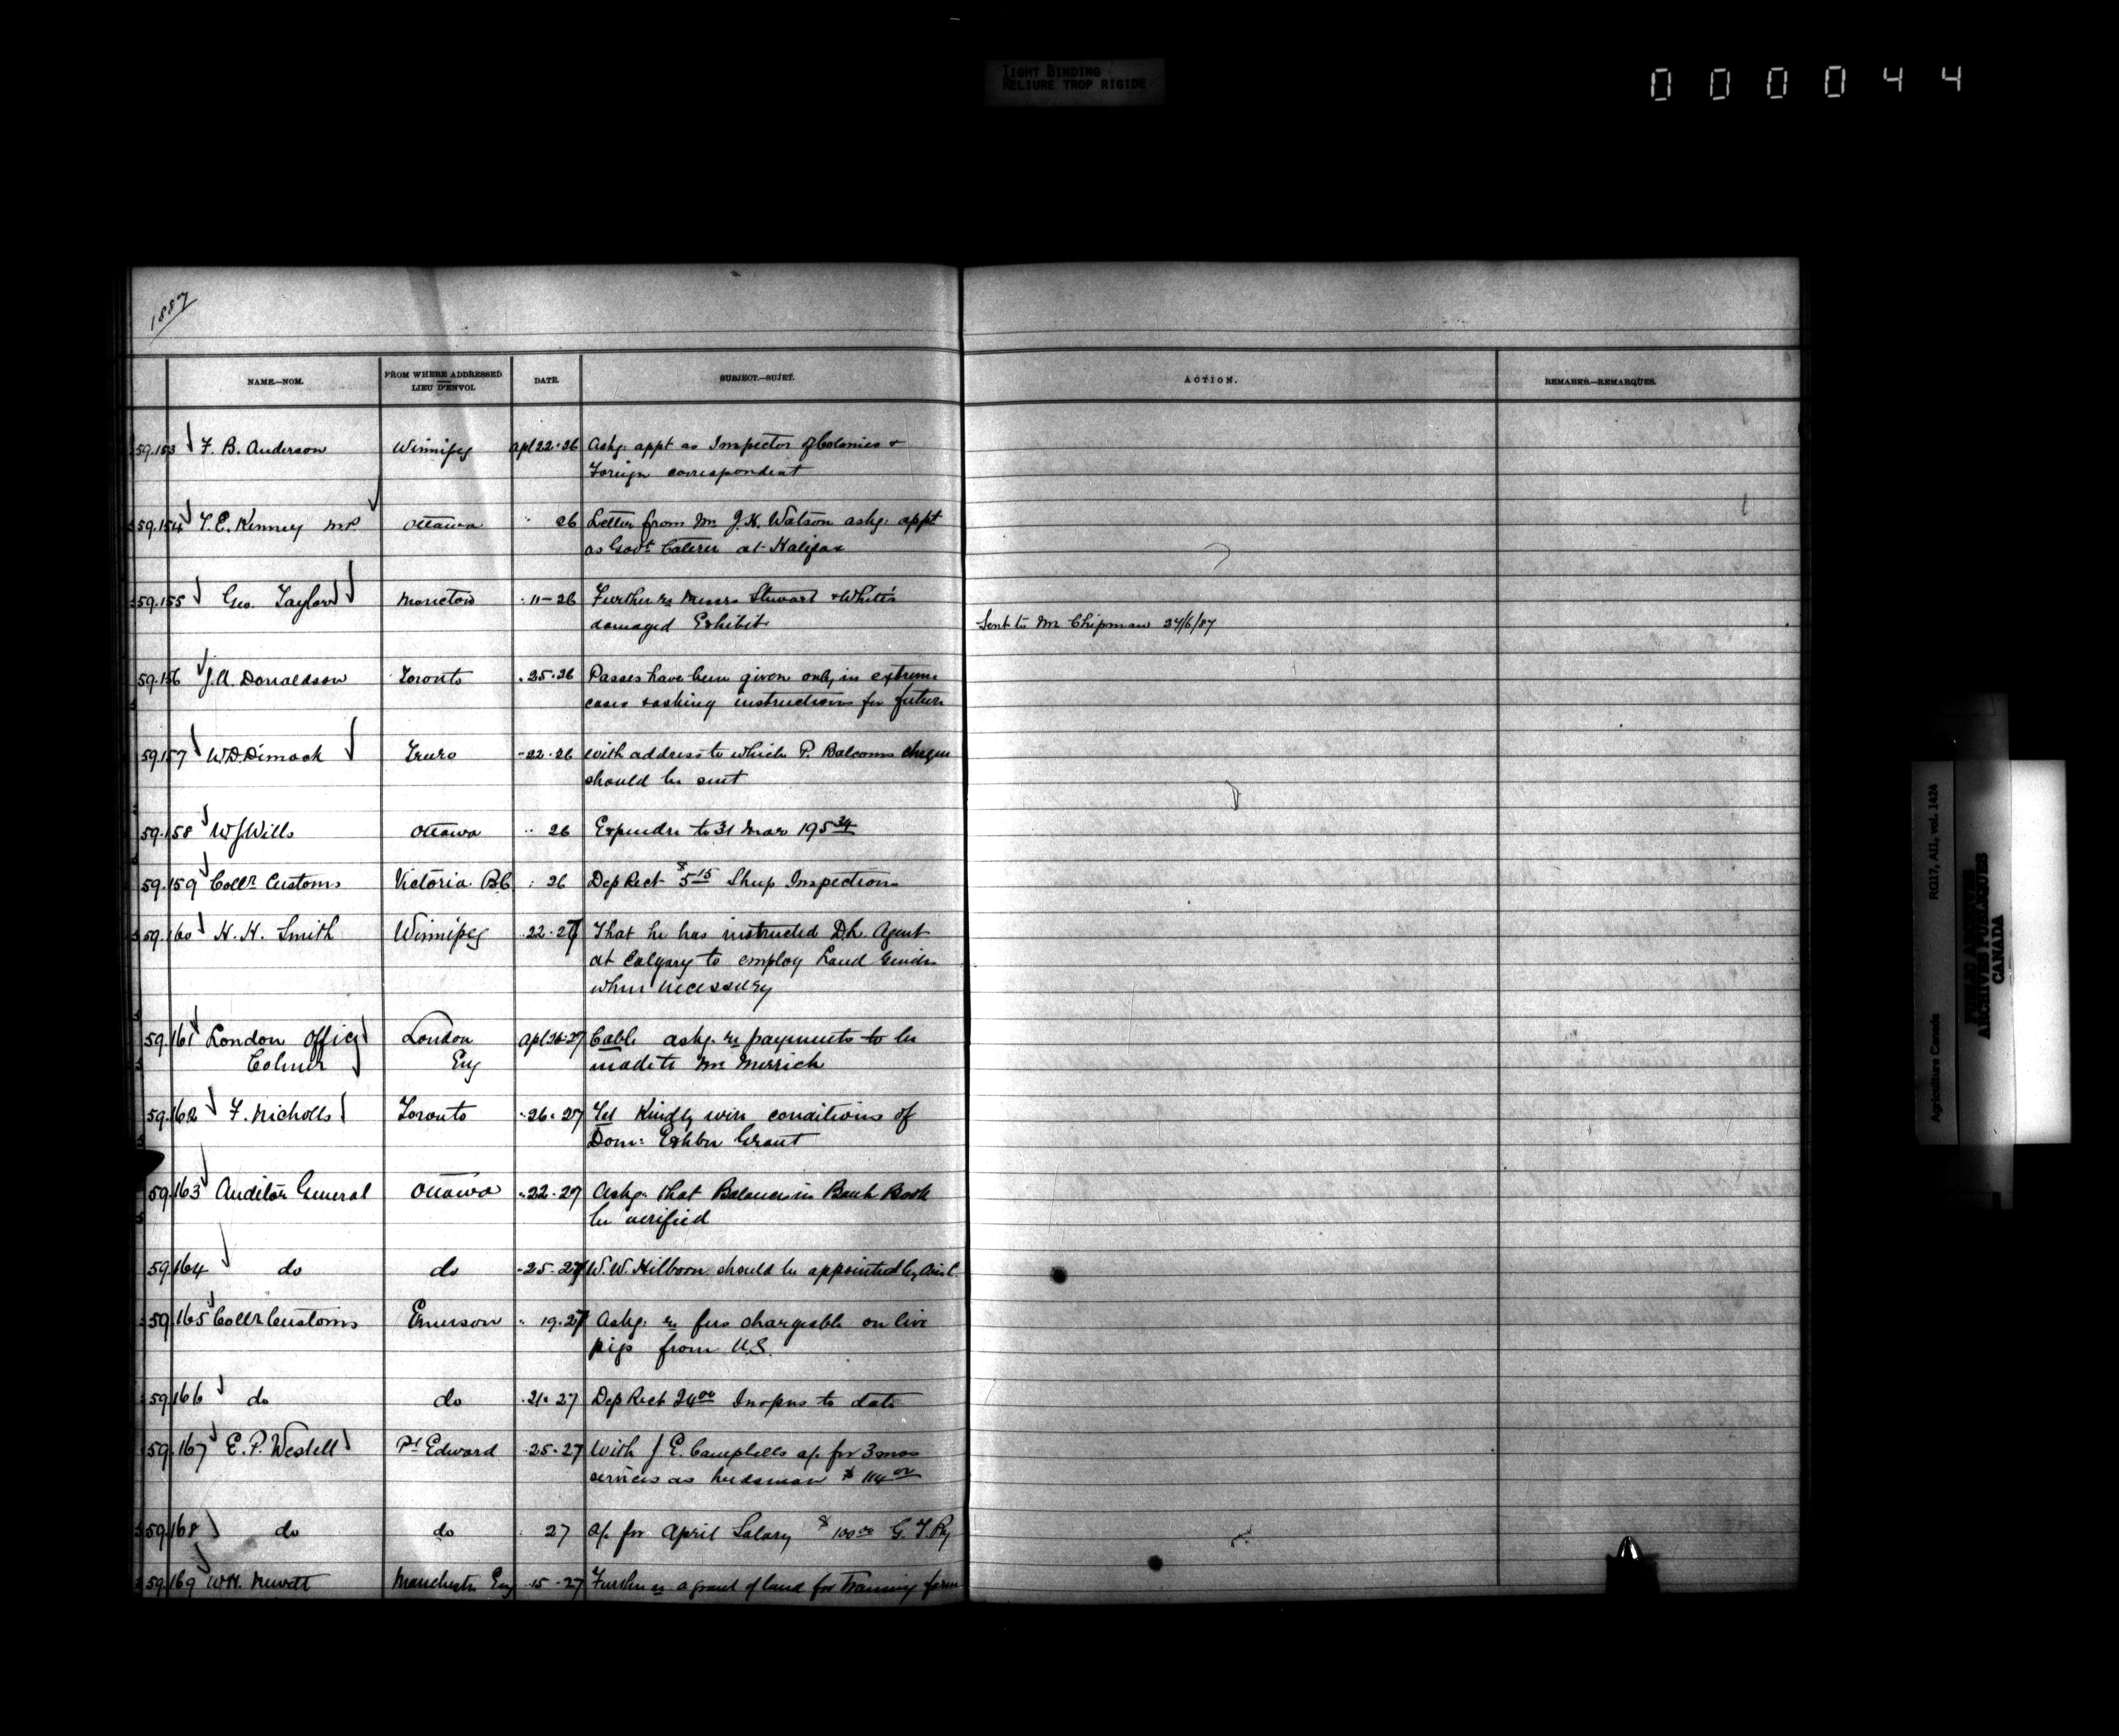 TIGHT BINDING
RELIURE TROP RIGIDE
000044
1887
NAME.—NOM. FROM WHERE ADDRESSED LIEU D'ENVOI. DATE. SUBJECT.—SUJET. ACTION. REMARKS.—REMARQUES.
59.153 F. B. Anderson Winnipeg Apl 22·26 Askg. appt as Inspector of Colonies &
Foreign correspondent
59.154 T. E. Kenney M.P. Ottawa " 26 Letter from Mr J. K. Watson askg. appt
as Govt Caterer at Halifax
59.155 Geo. Taylor Moncton " 11-26 Further re Messrs Stewart & White's
damaged Exhibit Sent to Mr Chipman 27/6/87
59.156 J. A. Donaldson Toronto " 25·26 Passes have been given only in extreme
cases & asking instructions for future
59.157 W. D. Dimock Truro " 22·26 with address to which P. Balcoms cheque
should be sent
59.158 W J Wills Ottawa " 26 Expendre to 31 Mar 195 34
59.159 Collr Customs Victoria B.C " 26 Dep Rect $5 15 Sheep Inspection
59.160 H. H. Smith Winnipeg " 22·27 That he has instructed D.L. Agent
at Calgary to employ Land Guides
when necessary
59.161 London Office London Apl 26·27 Cable askg. re payments to be
Colmer Eng made to Mr Merrick
59.162 F. Nicholls Toronto " 26·27 Tel Kindly wire conditions of
Dom: Exhbn Grant
59.163 Auditor General Ottawa " 22·27 Askg. that Balances in Bank Book
be verified
59.164 do do " 25·27 W. W. Hilborn should be appointed by
59.165 Collr Customs Emerson " 19·27 Askg. re fees chargeable on live
pigs from U.S.
59.166 do do " 21·27 Dep Rect 24 00 Inspns to date
59.167 E. P. Westell Pt Edward " 25·27 With J. E. Campbells a/c for 3 mos
services as herdsman $ 114 00
59.168 do do " 27 a/c for April Salary $ 100 00 G. T. Ry
59.169 W.H. Newett Manchester Eng " 15-27 Further re a grant of land for Training farm
Agriculture Canada RG17, AII, vol. 1424
PUBLIC ARCHIVES
ARCHIVES PUBLIQUES
CANADA